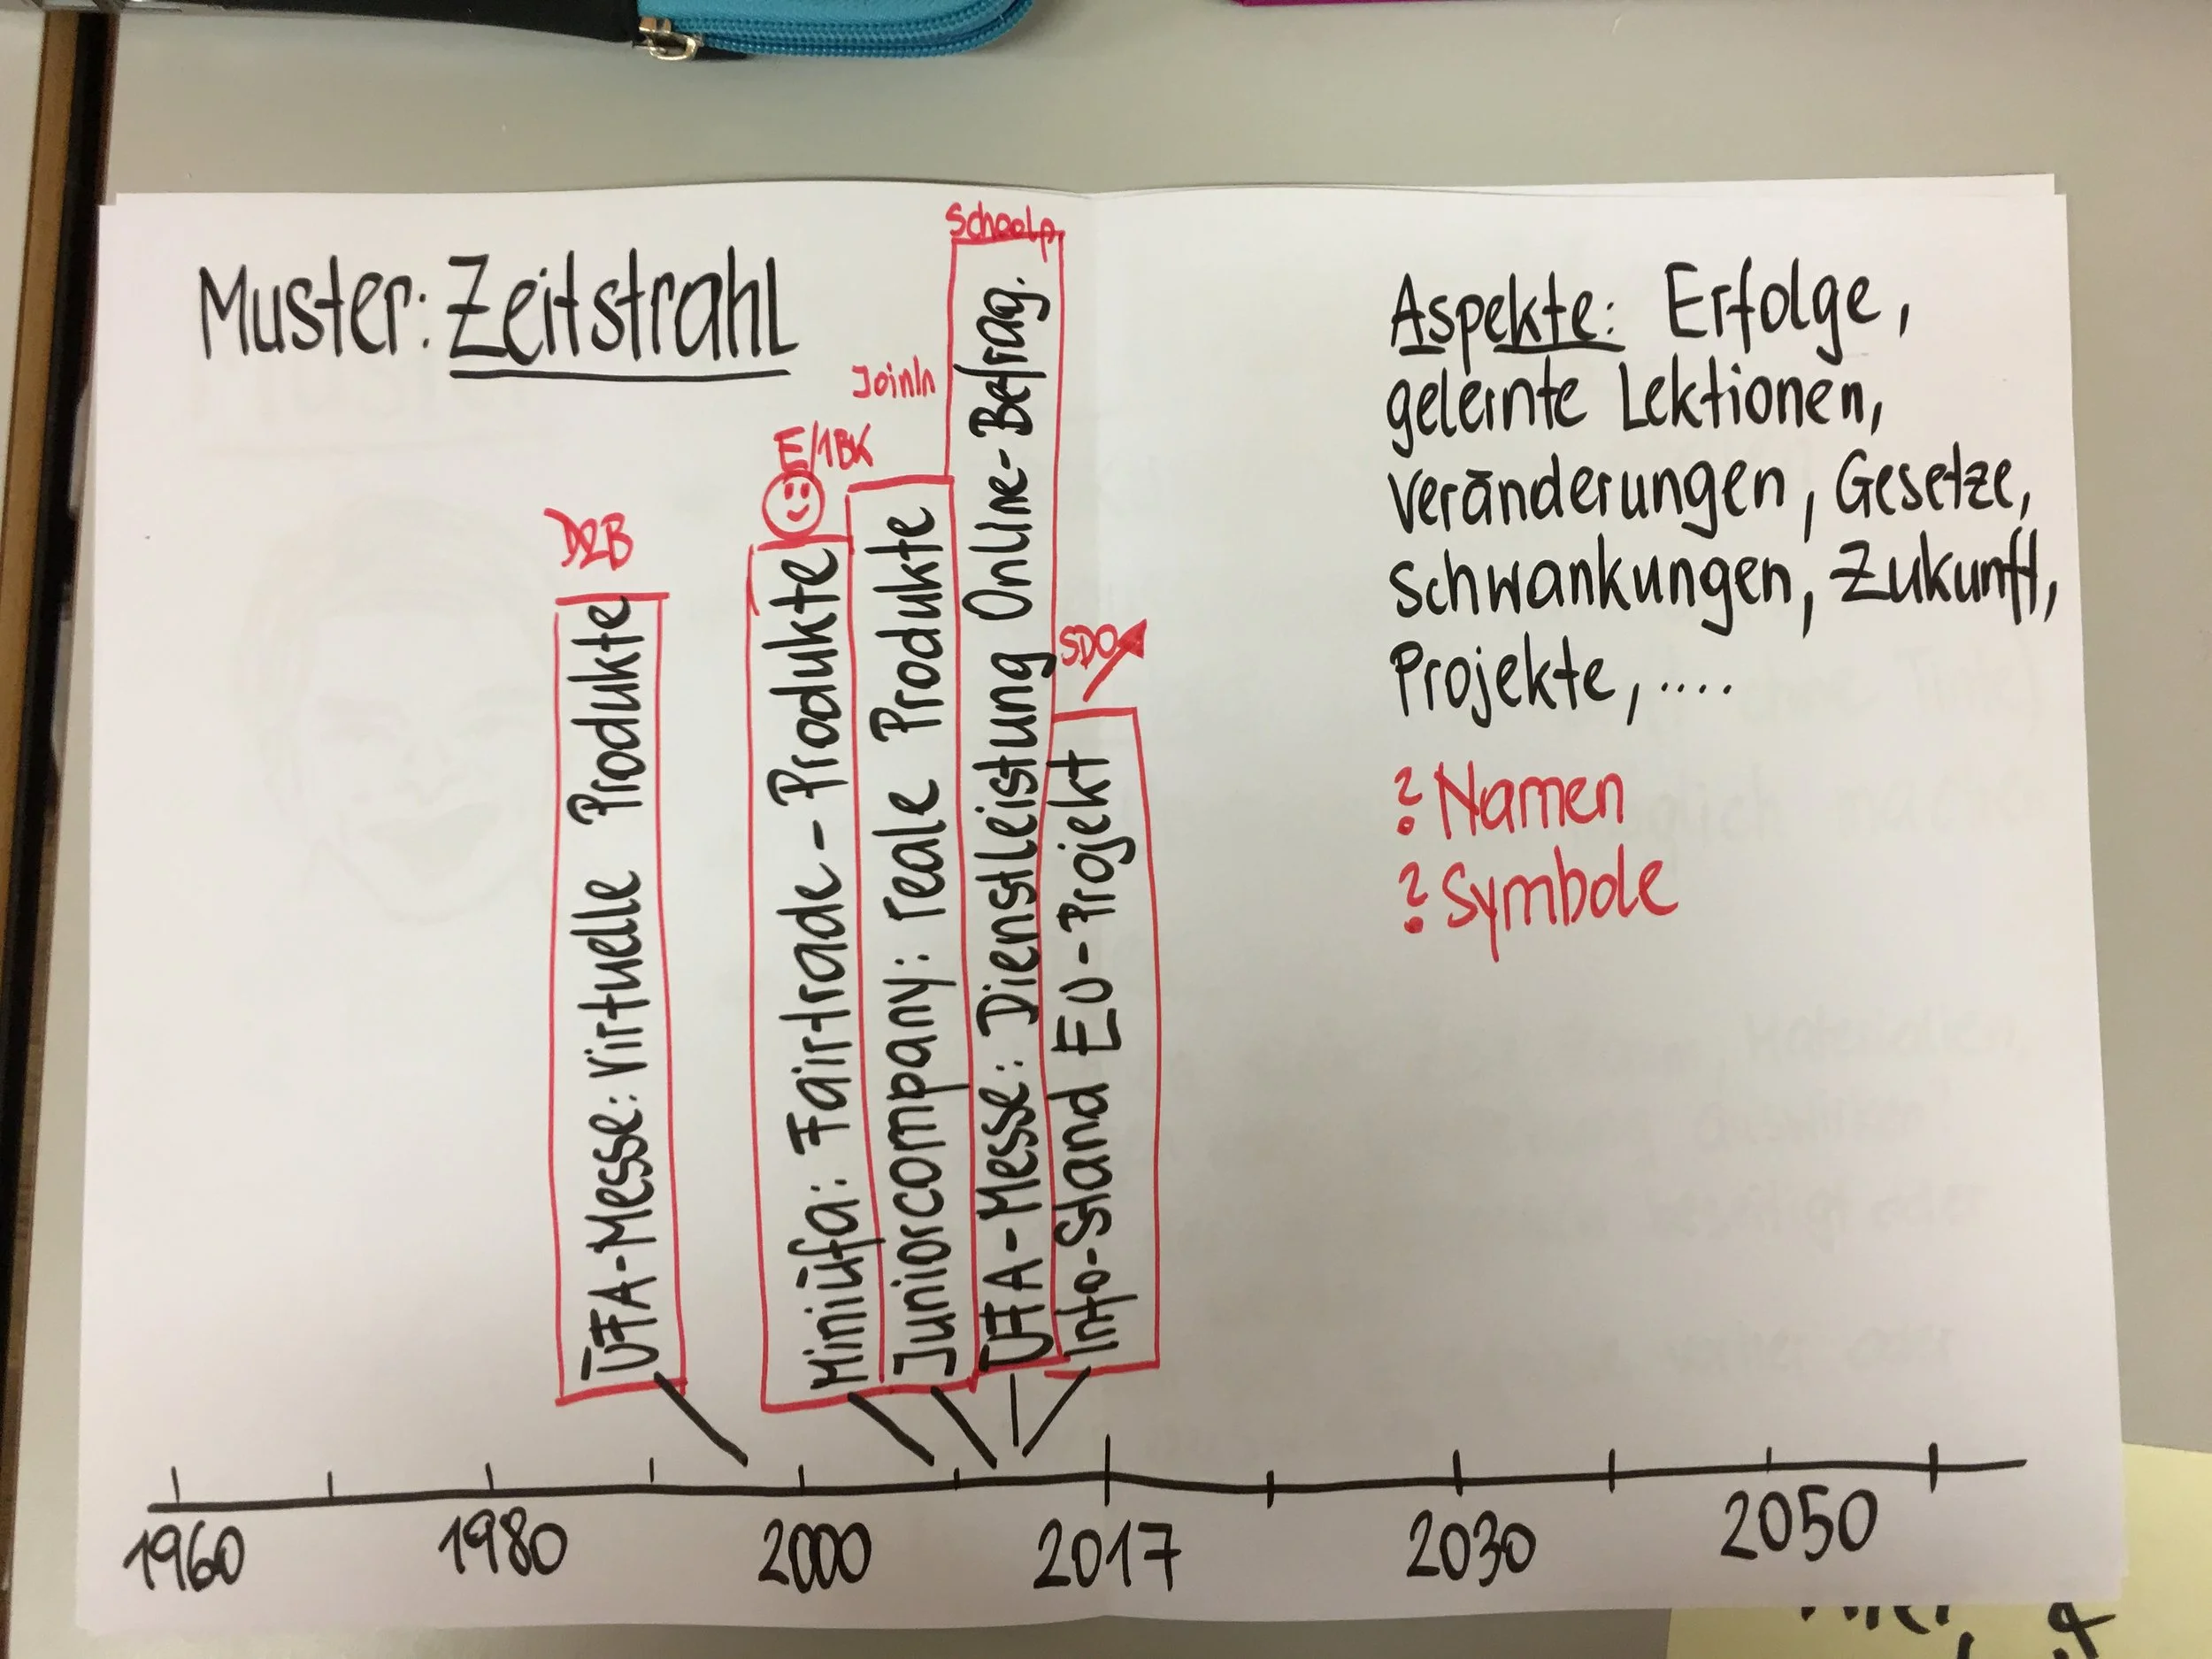 Muster: Zeitstrahl
Schoolp
JoinIn
E/1BK
D2B
SDO
ÜFA-Messe: virtuelle Produkte
Miniüfa: Fairtrade-Produkte
Juniorcompany: reale Produkte
ÜFA-Messe: Dienstleistung Online-Befrag.
Info-Stand EU-Projekt
Aspekte: Erfolge,
gelernte Lektionen,
Veränderungen, Gesetze,
Schwankungen, Zukunft,
Projekte,....
? Namen
? Symbole
1960 1980 2000 2017 2030 2050